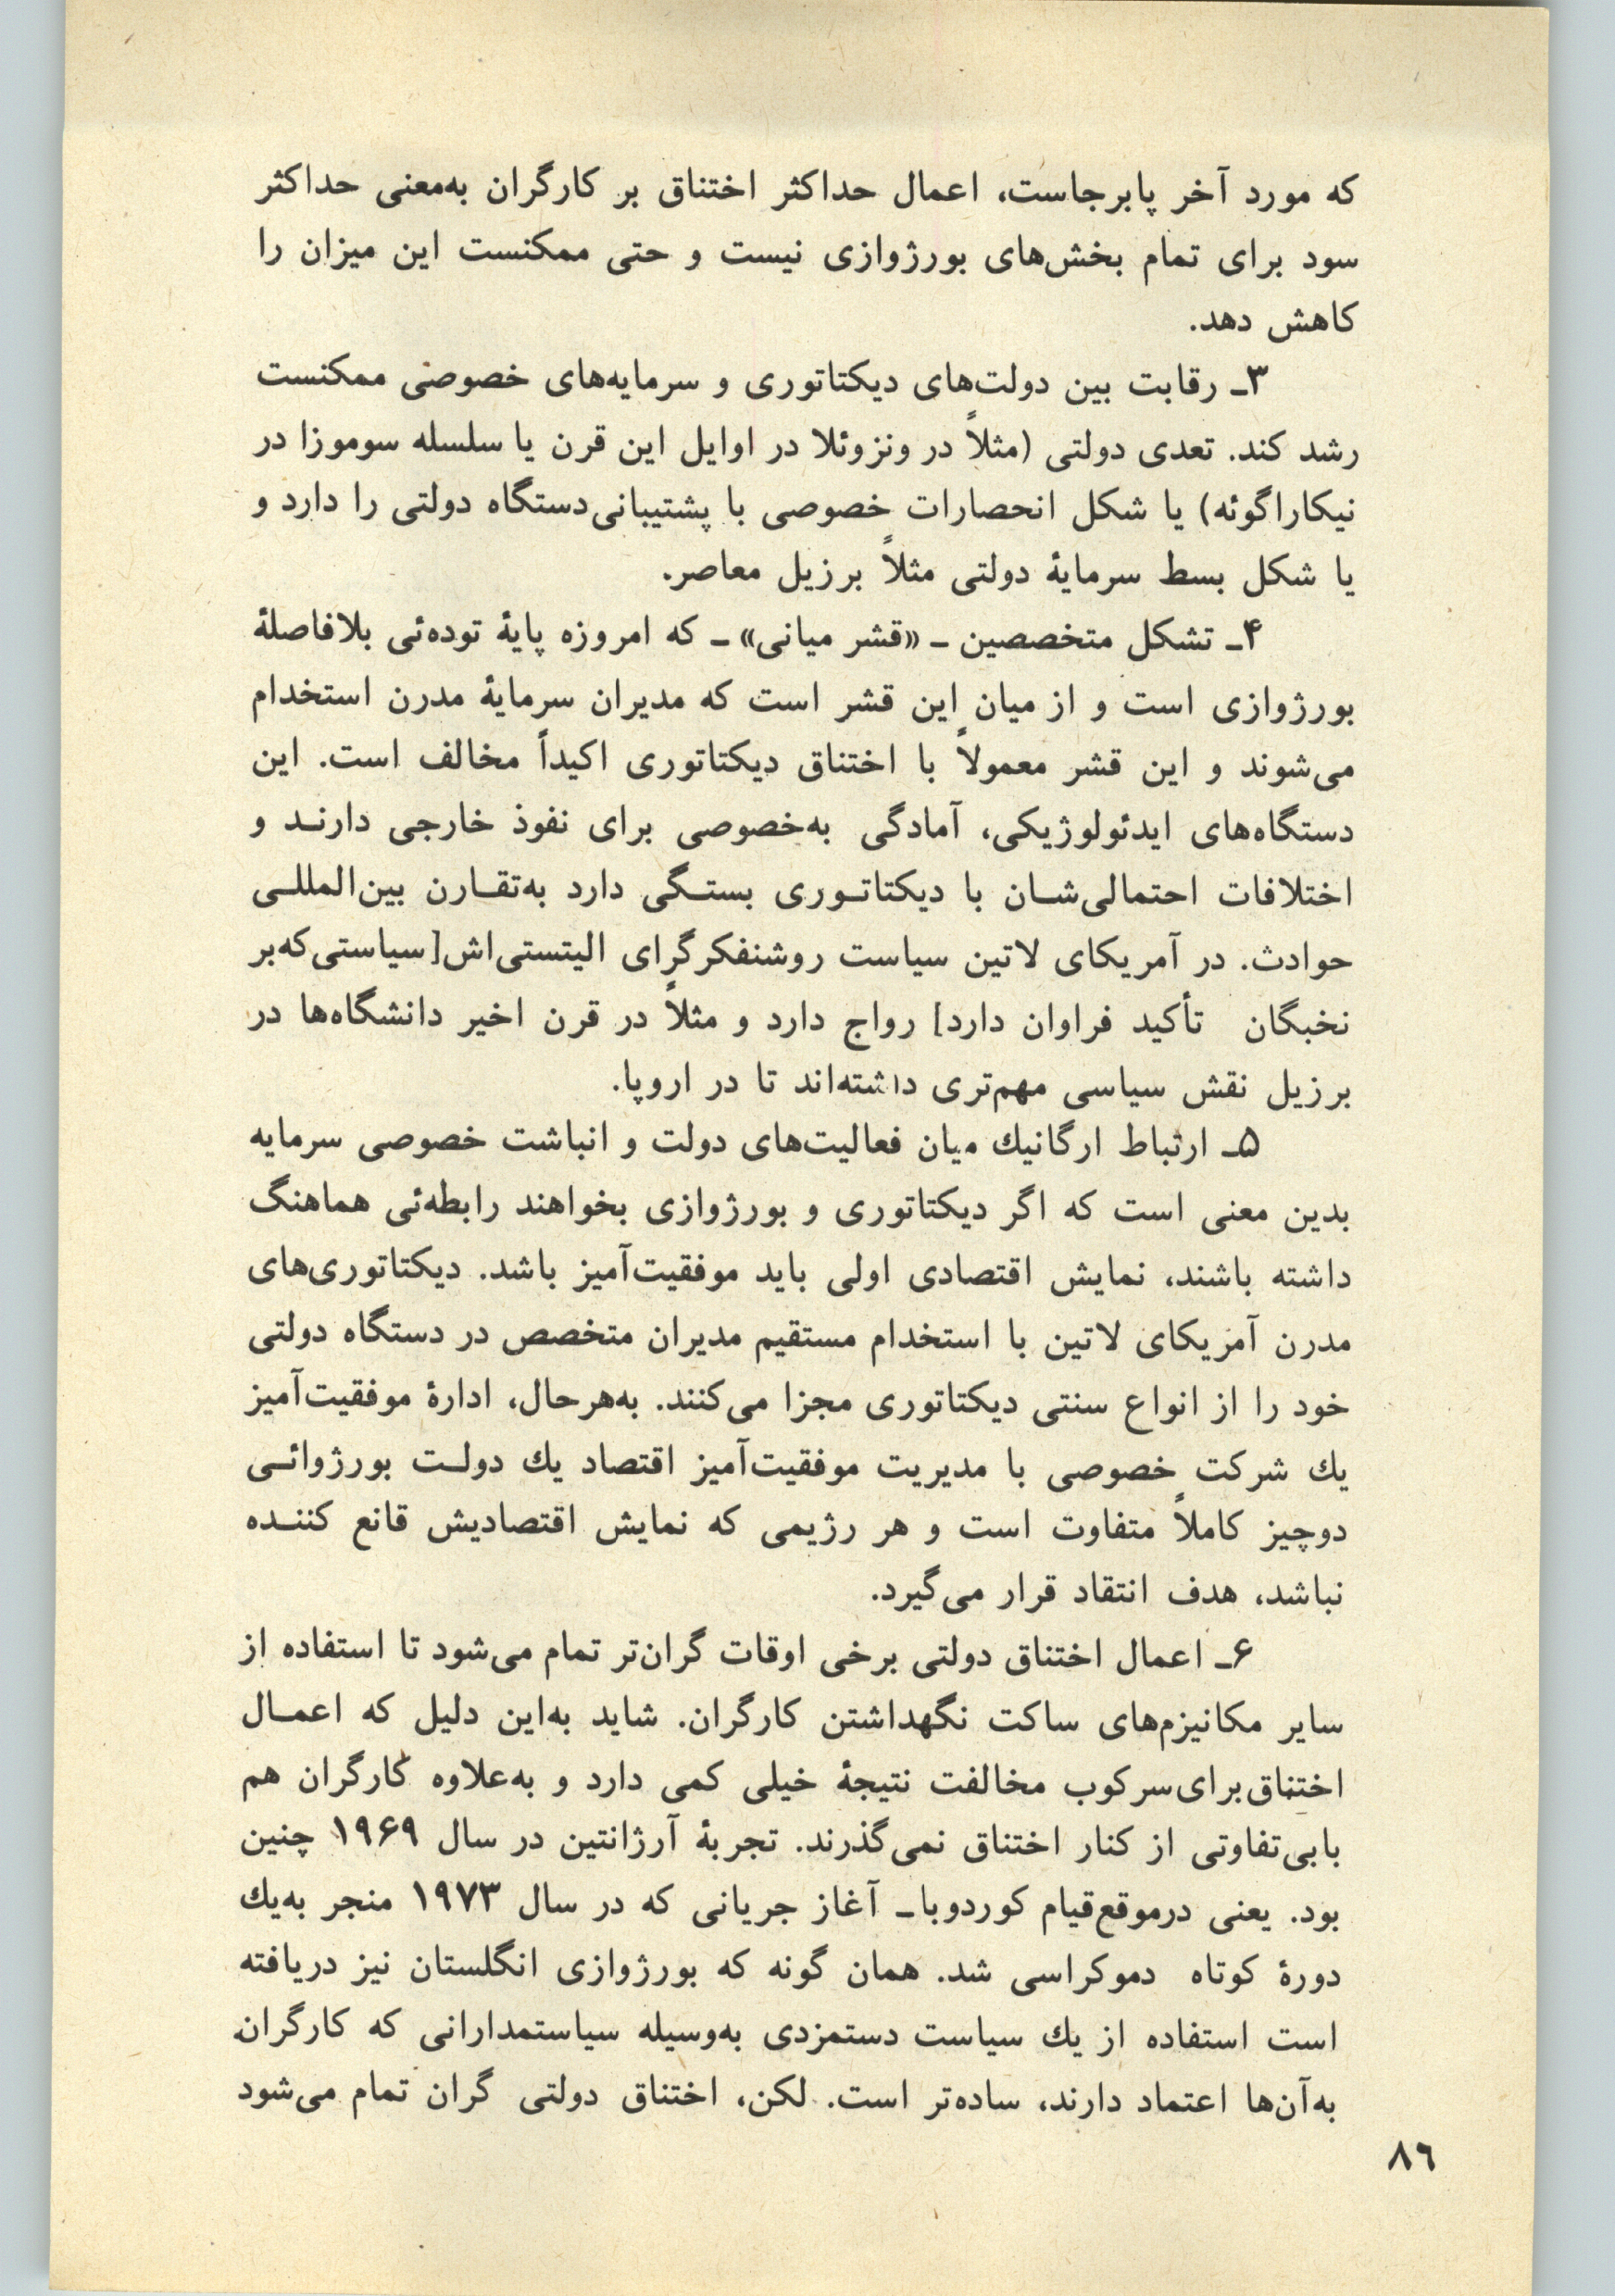 که مورد آخر پابرجاست، اعمال حداکثر اختناق بر کارگران به‌معنی حداکثر
سود برای تمام بخش‌های بورژوازی نیست و حتی ممکنست این میزان را
کاهش دهد.
۳ـ رقابت بین دولت‌های دیکتاتوری و سرمایه‌های خصوصی ممکنست
رشد کند. تعدی دولتی (مثلاً در ونزوئلا در اوایل این قرن یا سلسله سوموزا در
نیکاراگوئه) یا شکل انحصارات خصوصی با پشتیبانی‌دستگاه دولتی را دارد و
یا شکل بسط سرمایهٔ دولتی مثلاً برزیل معاصر.
۴ـ تشکل متخصصین ـ «قشر میانی» ـ که امروزه پایهٔ توده‌ئی بلافاصلهٔ
بورژوازی است و از میان این قشر است که مدیران سرمایهٔ مدرن استخدام
می‌شوند و این قشر معمولاً با اختناق دیکتاتوری اکیداً مخالف است. این
دستگاه‌های ایدئولوژیکی، آمادگی به‌خصوصی برای نفوذ خارجی دارنـد و
اختلافات احتمالی‌شـان با دیکتاتـوری بستـگی دارد به‌تقـارن بین‌المللـی
حوادث. در آمریکای لاتین سیاست روشنفکرگرای الیتستی‌اش[سیاستی‌که‌بر
نخبگان تأکید فراوان دارد] رواج دارد و مثلاً در قرن اخیر دانشگاه‌ها در
برزیل نقش سیاسی مهم‌تری داشته‌اند تا در اروپا.
۵ـ ارتباط ارگانیك میان فعالیت‌های دولت و انباشت خصوصی سرمایه
بدین معنی است که اگر دیکتاتوری و بورژوازی بخواهند رابطه‌ئی هماهنگ
داشته باشند، نمایش اقتصادی اولی باید موفقیت‌آمیز باشد. دیکتاتوری‌های
مدرن آمریکای لاتین با استخدام مستقیم مدیران متخصص در دستگاه دولتی
خود را از انواع سنتی دیکتاتوری مجزا می‌کنند. به‌هرحال، ادارهٔ موفقیت‌آمیز
یك شرکت خصوصی با مدیریت موفقیت‌آمیز اقتصاد یك دولـت بورژوائـی
دوچیز کاملاً متفاوت است و هر رژیمی که نمایش اقتصادیش قانع کننـده
نباشد، هدف انتقاد قرار می‌گیرد.
۶ـ اعمال اختناق دولتی برخی اوقات گران‌تر تمام می‌شود تا استفاده از
سایر مکانیزم‌های ساکت نگهداشتن کارگران. شاید به‌این دلیل که اعمـال
اختناق‌برای‌سرکوب مخالفت نتیجهٔ خیلی کمی دارد و به‌علاوه کارگران هم
بابی‌تفاوتی از کنار اختناق نمی‌گذرند. تجربهٔ آرژانتین در سال ۱۹۶۹ چنین
بود. یعنی درموقع‌قیام کوردوباـ آغاز جریانی که در سال ۱۹۷۳ منجر به‌یك
دورهٔ کوتاه دموکراسی شد. همان گونه که بورژوازی انگلستان نیز دریافته
است استفاده از یك سیاست دستمزدی به‌وسیله سیاستمدارانی که کارگران
به‌آن‌ها اعتماد دارند، ساده‌تر است. لکن، اختناق دولتی گران تمام می‌شود
۸٦